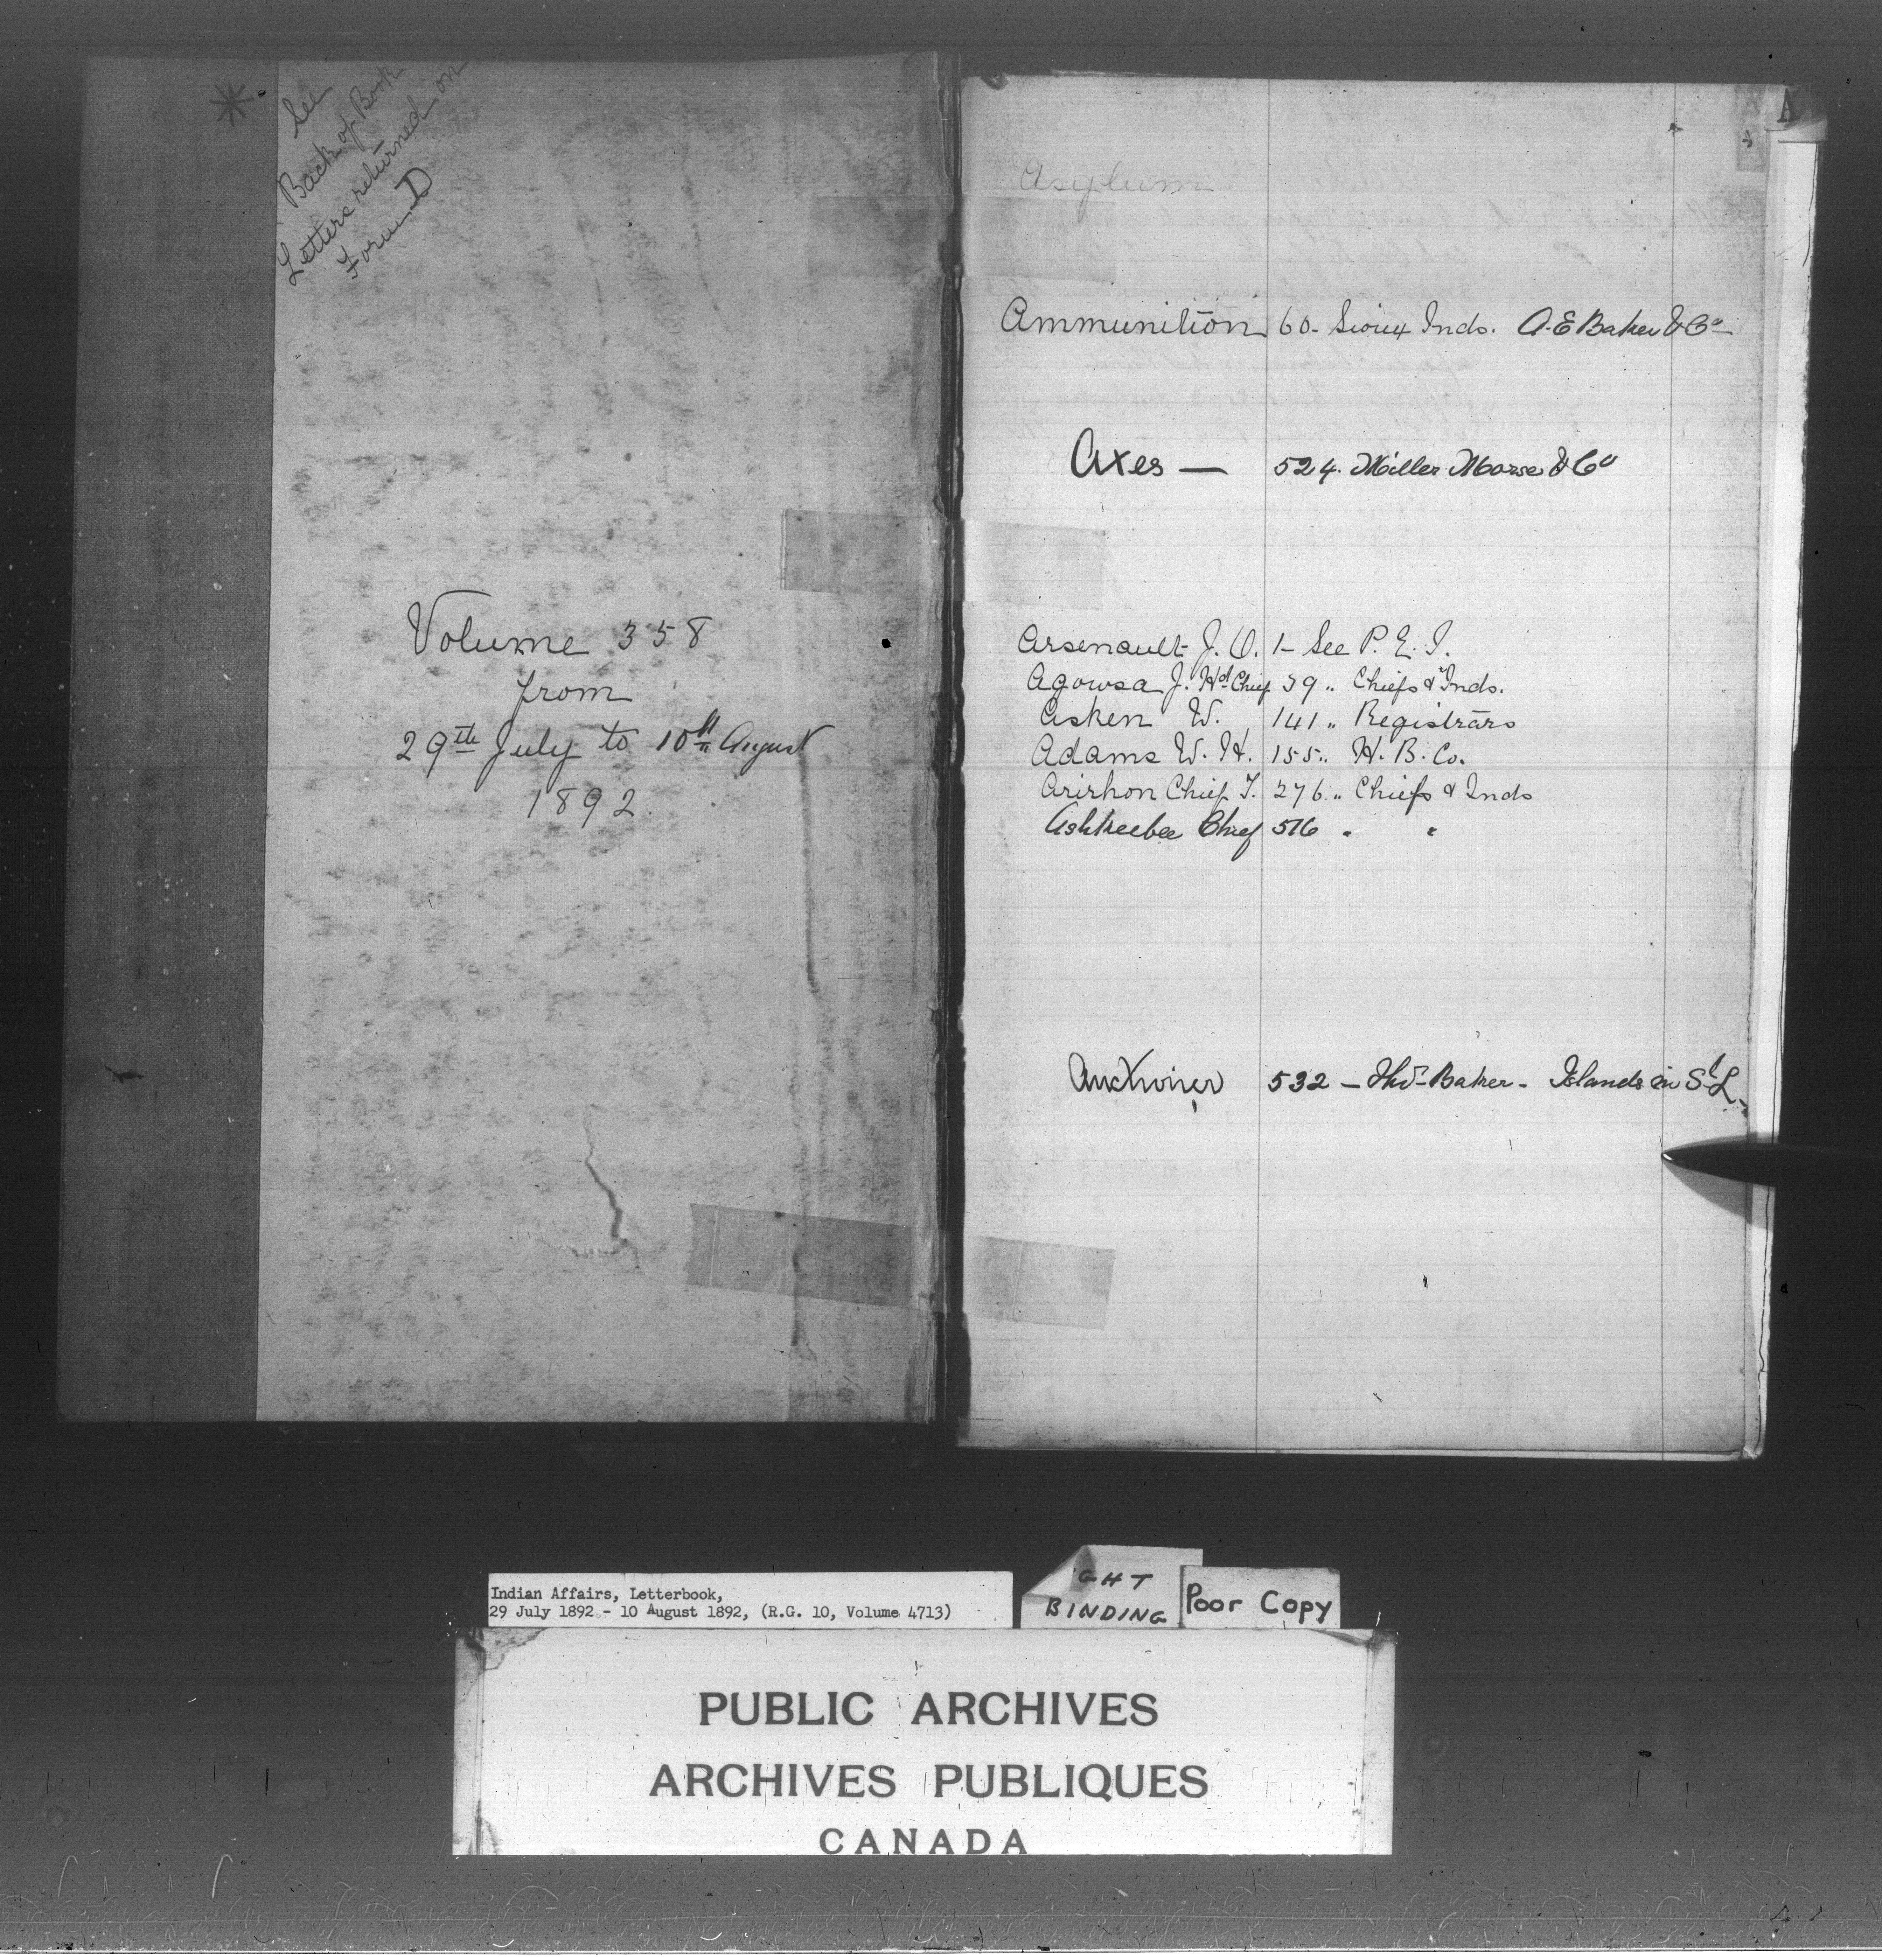 * See
Back of Book
Letters returned on
Form D
Volume 358
from
29th July to 10th August
1892.
A
Asylum
Ammunition 60- Sioux Inds. A.E Baker & Co
Axes — 524. Miller Morse & Co
Arsenault J. O. 1- See P. E. I.
Agowsa J. Hd Chief 39 " Chiefs & Inds.
Asken W. 141 " Registrars
Adams W. H. 155 " H. B. Co.
Arirhon Chief T. 276 " Chiefs & Inds
Ashkeebee Chief 516 " "
532 - Thos Baker - Islands in St L.
Indian Affairs, Letterbook,
29 July 1892 - 10 August 1892, (R.G. 10, Volume 4713)
GHT
BINDING
Poor Copy
PUBLIC ARCHIVES
ARCHIVES PUBLIQUES
CANADA